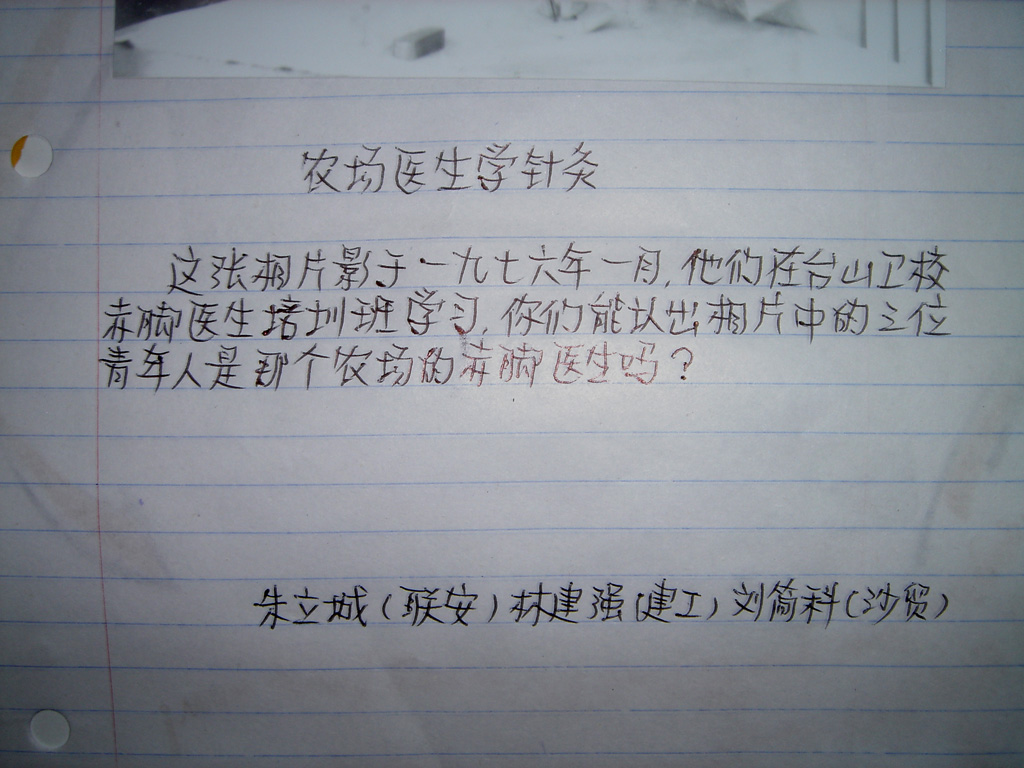 农场医生学针灸
这张相片影于一九七六年一月,他们在台山卫校
赤脚医生培训班学习,你们能认出相片中的三位
青年人是那个农场的赤脚医生吗?
朱立城(联安)林建强(建工)刘简科(沙贸)